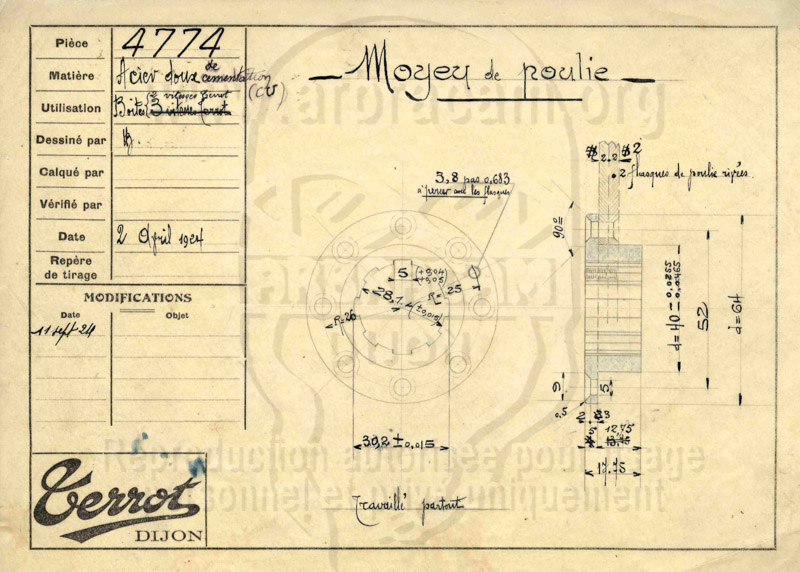 Pièce 4774
Matière Acier doux de cementation (CV)
Utilisation 2 vitesses Terrot
Boites
Dessiné par
Calqué par
Vérifié par
Date 2 April 1924
Repère
de tirage
MODIFICATIONS
Date Objet
Terrot
DIJON
Moyeu de poulie
5,8 pas 0,683
à percer avec les flasques
2
2 flasques de poulie rivés
90º
5
(+0,04
+0,05)
28,1
(±0,015)
25
R=26
30,2 ± 0,015
d=40 - 0,0265
0,0465
52
d=64
9
5
0,5
2
12,75
17,75
Travaillé partout
www.arbracam.org
Reproduction autorisée pour usage
personnel et privé uniquement